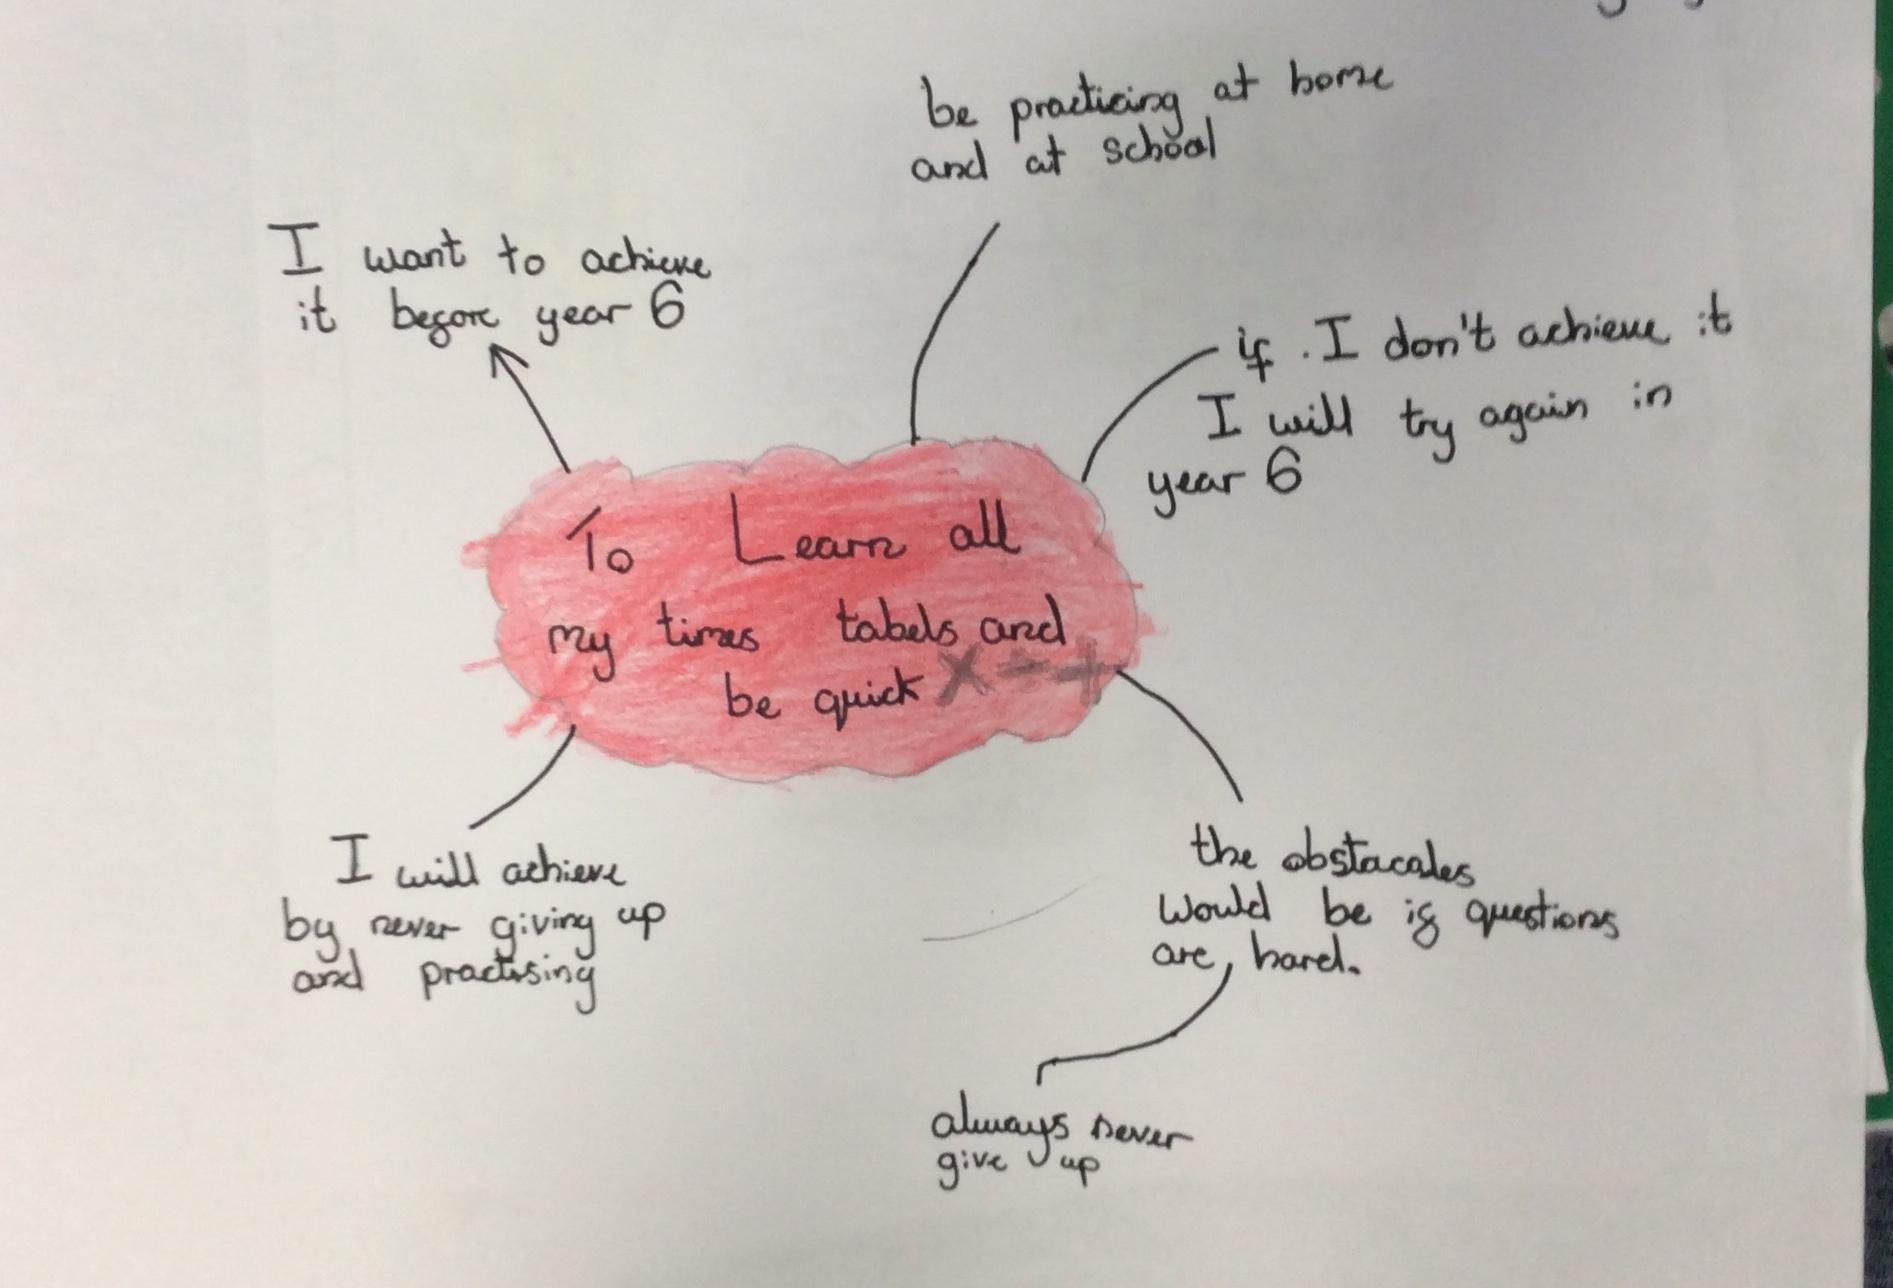 be practicing at home
and at school
I want to achieve
it before year 6
if . I don't achieve it
I will try again in
year 6
To Learn all
my times tabels and
be quick × ÷ +
I will achieve
by never giving up
and practising
the obstacales
would be if questions
are, hard.
always never
give up